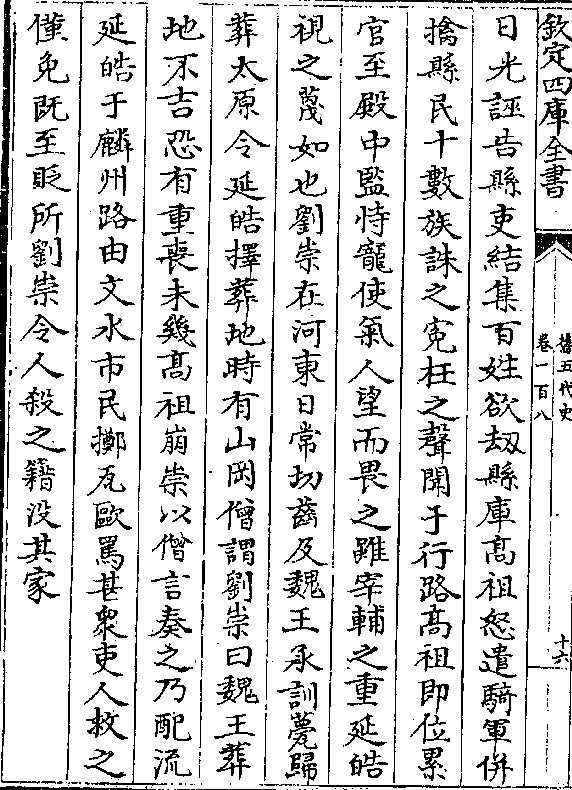 欽定四庫全書
舊五代史
卷一百八
十六
日光誣告縣吏結集百姓欲刼縣庫髙祖怒遣騎軍併
擒縣民十數族誅之寃枉之聲聞于行路髙祖即位累
官至殿中監恃寵使氣人望而畏之雖宰輔之重延皓
視之蔑如也劉崇在河東日常切齒及魏王承訓薨歸
葬太原令延皓擇葬地時有山岡僧謂劉崇曰魏王葬
地不吉恐有重喪未幾髙祖崩崇以僧言奏之乃配流
延皓于麟州路由文水市民擲瓦毆罵甚衆吏人救之
僅免既至貶所劉崇令人殺之籍没其家